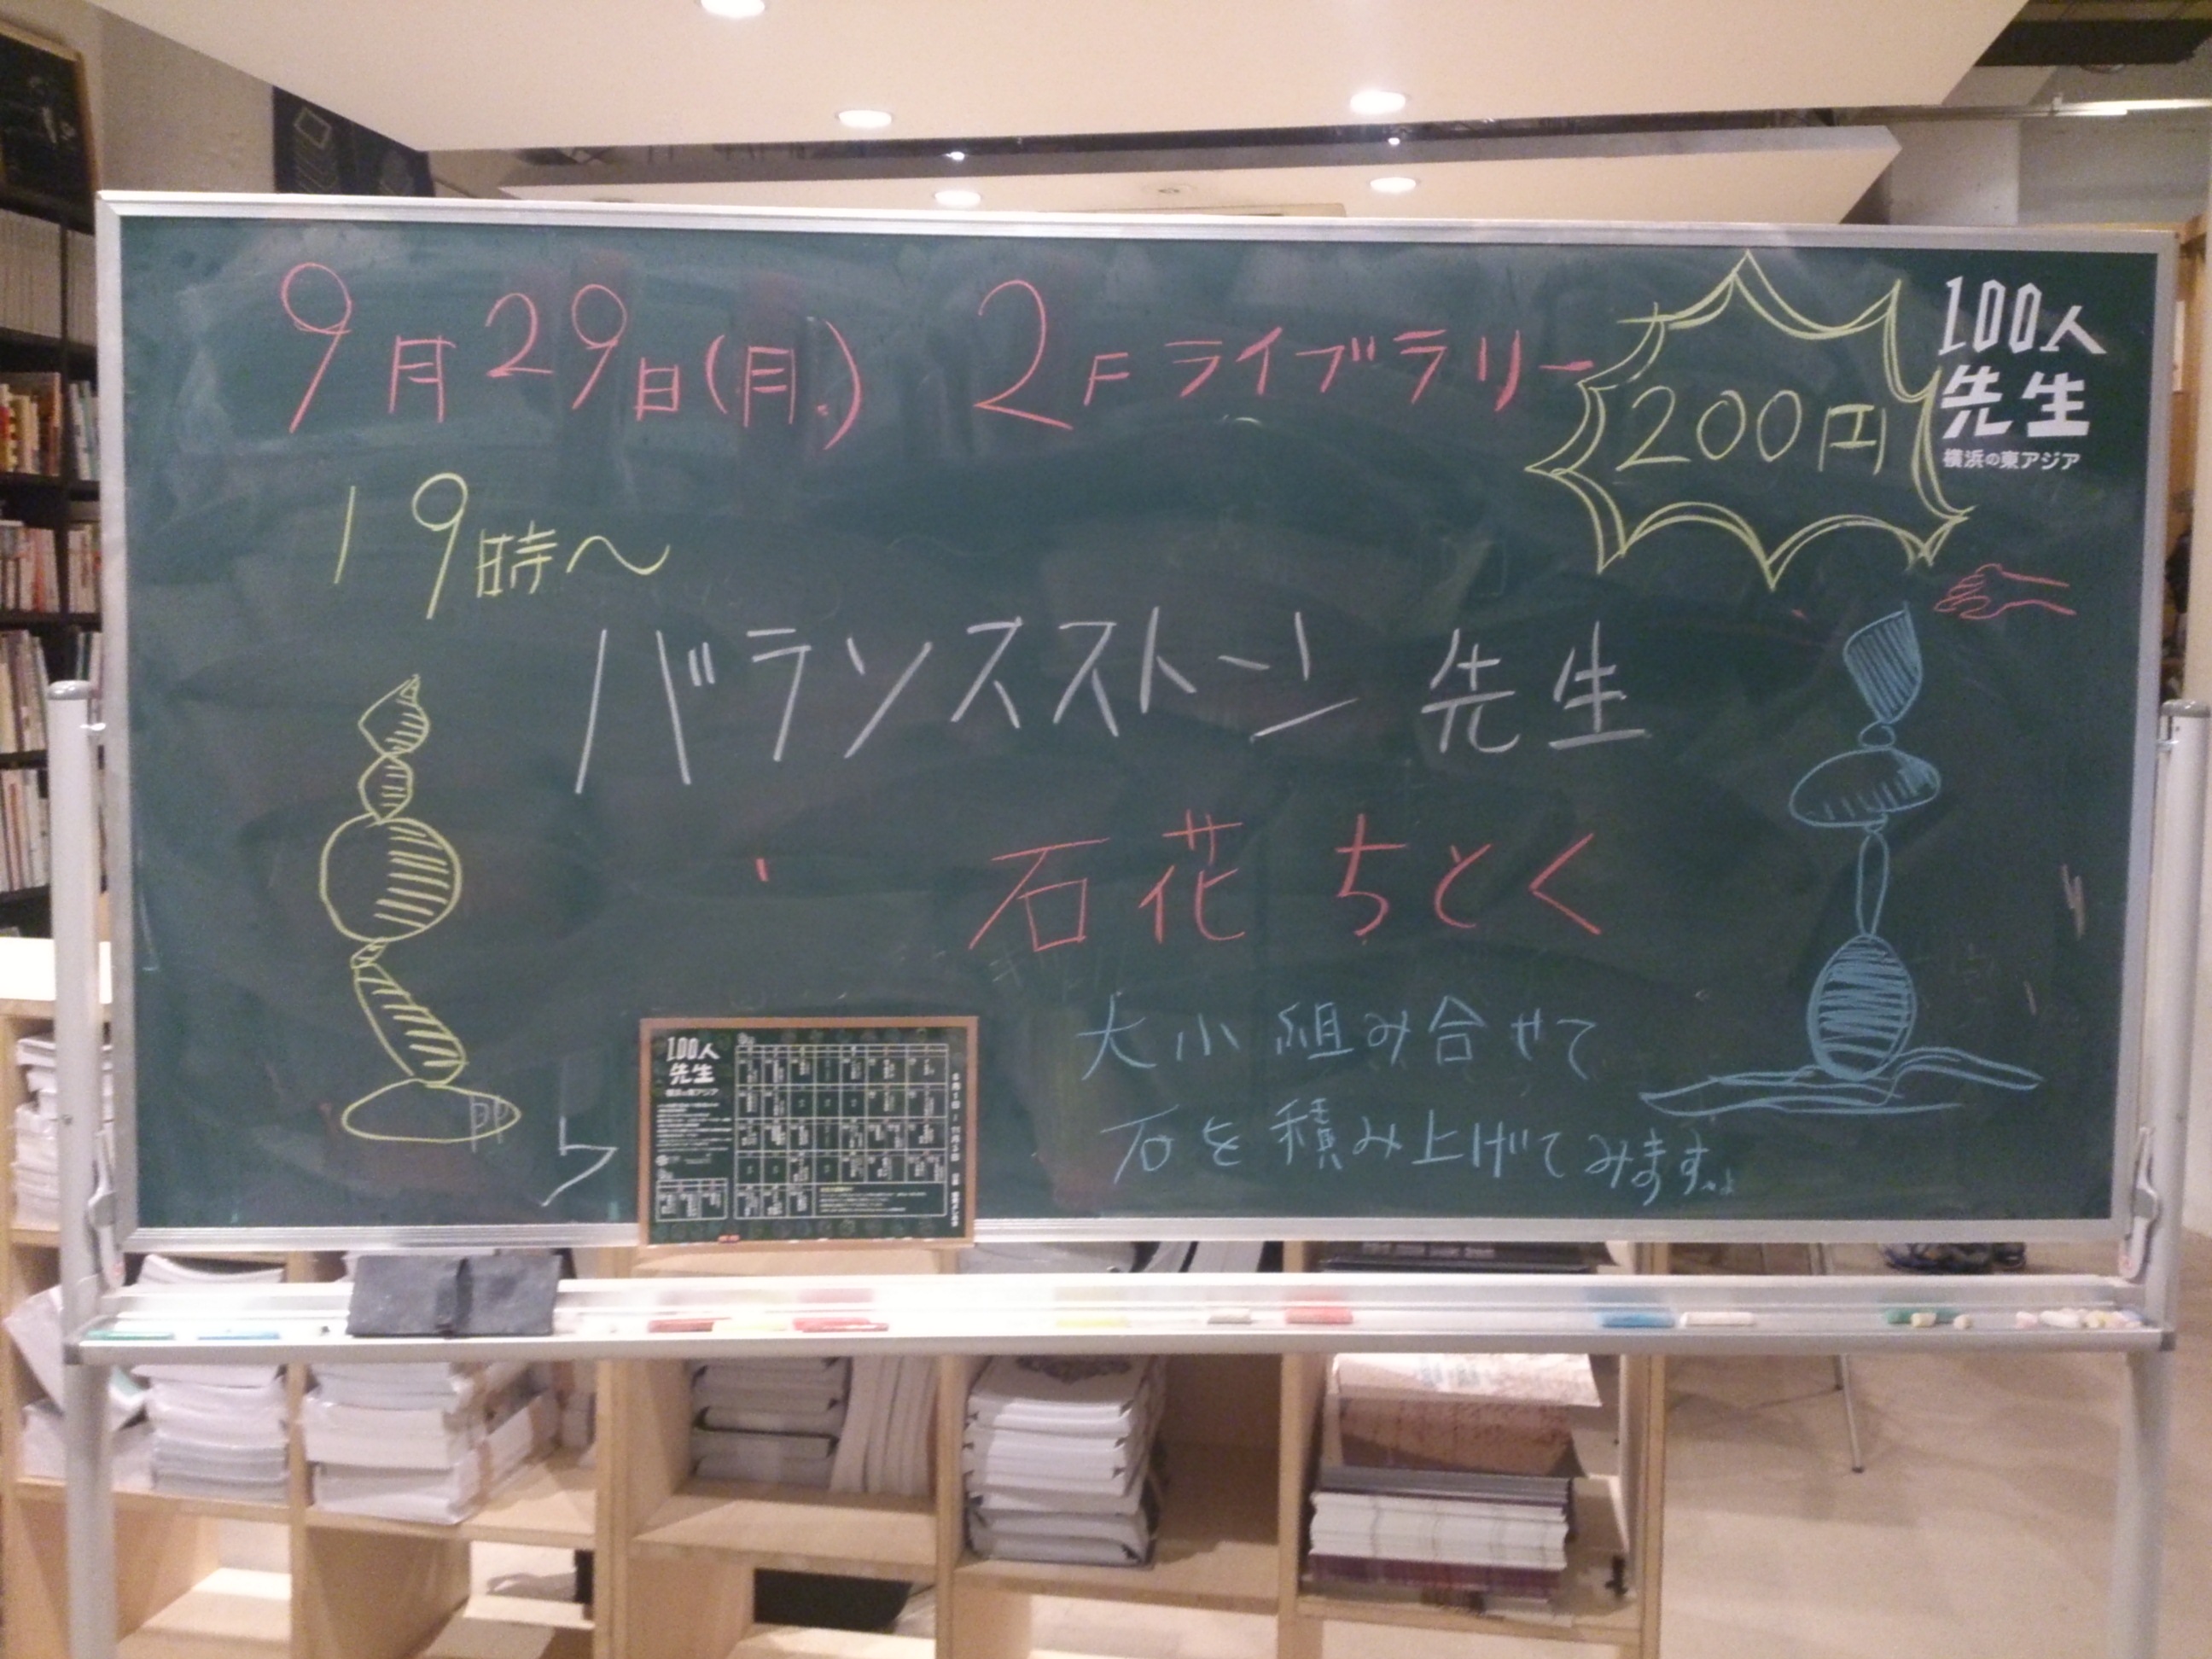 9月29日(月.) 2Fライブラリー
200円
100人
先生
横浜の東アジア
19時〜
バランスストーン 先生
石花 ちとく
大小組み合せて
石を積み上げてみます。
100人
先生
横浜の東アジア